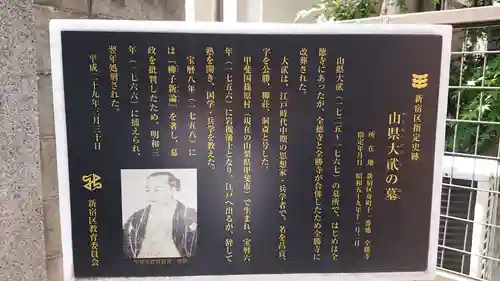 新宿区指定史跡
山県大弐の墓
所在地 新宿区舟町十一番地 全勝寺
指定年月日 昭和五十九年十一月二日
山県大弐(一七二五~一七六七)の墓所で、はじめは全
徳寺にあったが、全徳寺と全勝寺が合併したため全勝寺に
改葬された。
大弐は、江戸時代中期の思想家・兵学者で、名を昌貞、
字を公勝、柳荘、洞斎と号した。
甲斐国篠原村(現在の山梨県甲斐市)で生まれ、宝暦六
年(一七五六)に岩槻藩士となり、江戸へ出るが、辞して
塾を開き、国学・兵学を教えた。
宝暦八年(一七五八)に
は『柳子新論』を著し、幕
政を批判したため、明和三
年(一七六六)に捕えられ、
翌年処刑された。
平成二十九年三月三十日
新宿区教育委員会